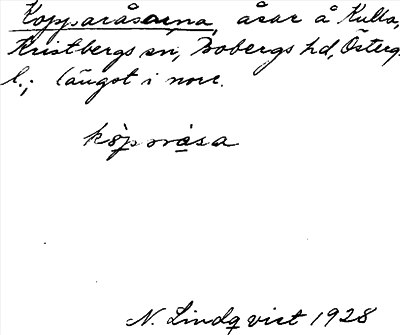 Kopparåsarna, åsar å Kulla,
Kristbergs sn, Bobergs hd, Österg.
l.; längst i norr.
kòpråsa
N. Lindqvist 1928